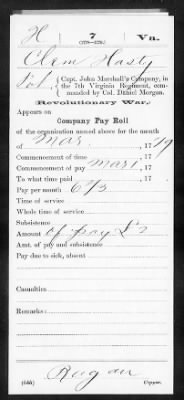 H 7 Va.
(178—179.)
Clem Hasty
Pvt., Capt. John Marshall's Company, in
the 7th Virginia Regiment, com-
manded by Col. Daniel Morgan.
(Revolutionary War.)
Appears on
Company Pay Roll
of the organization named above for the month
of Mar, 1779
Commencement of time , 17
Commencement of pay Mar 1, 17
To what time paid , 17
Pay per month 6 2/3
Time of service
Whole time of service
Subsistence
Amount of pay £2
Amt. of pay and subsistence
Pay due to sick, absent
Casualties
Remarks:
Ragan
(545) Copyist.